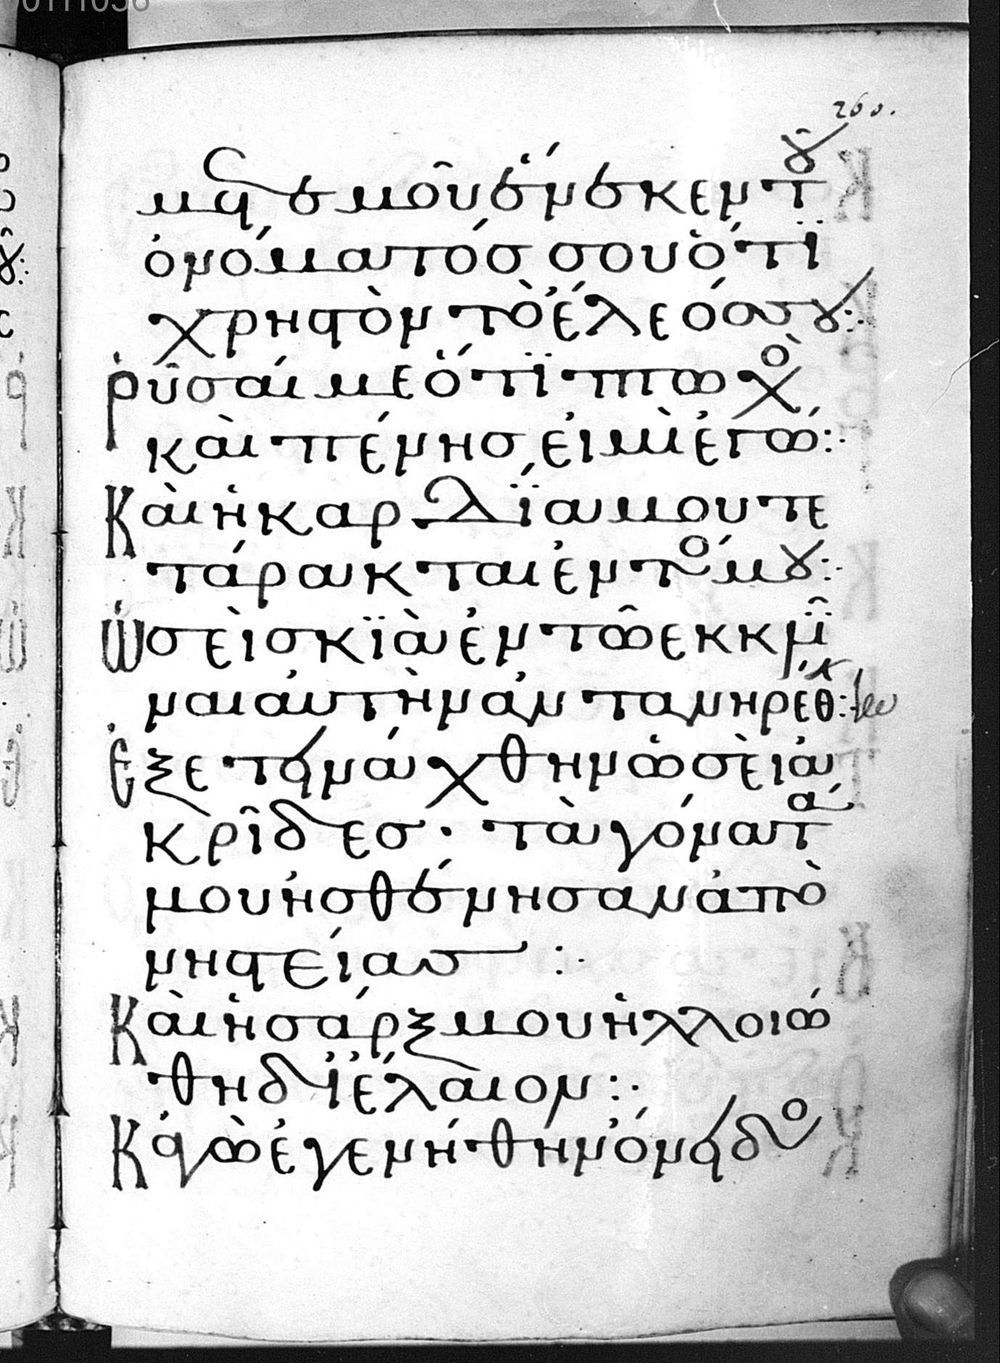 260.
μετ' ἐμοῦ ἕνεκεν τοῦ
ὀνόματός σου ὅτϊ
χρηστὸν τὸ ἔλεός σου:
ῥῦσαί με ὅτϊ πτωχὸ
καὶ πένης εἰμὶ ἐγώ:·
Καὶ ἡ καρδΐα μου τε
τάρακται ἐντός μου:·
Ὡσεὶ σκϊὰ ἐν τῶ ἐκκλῖ
ναι αὐτὴν ἀντανηρέθ:
Ἐξετινάχθην ὡσεὶ ἀ
κρῖδες· τὰ γόνατά
μου ἠσθένησαν ἀπὸ
νηστείας :·
Καὶ ἡ σάρξ μου ἠλλοιώ
θη δϊ ἔλαιον :·
Κἀγὼ ἐγενήθην ὄνειδο